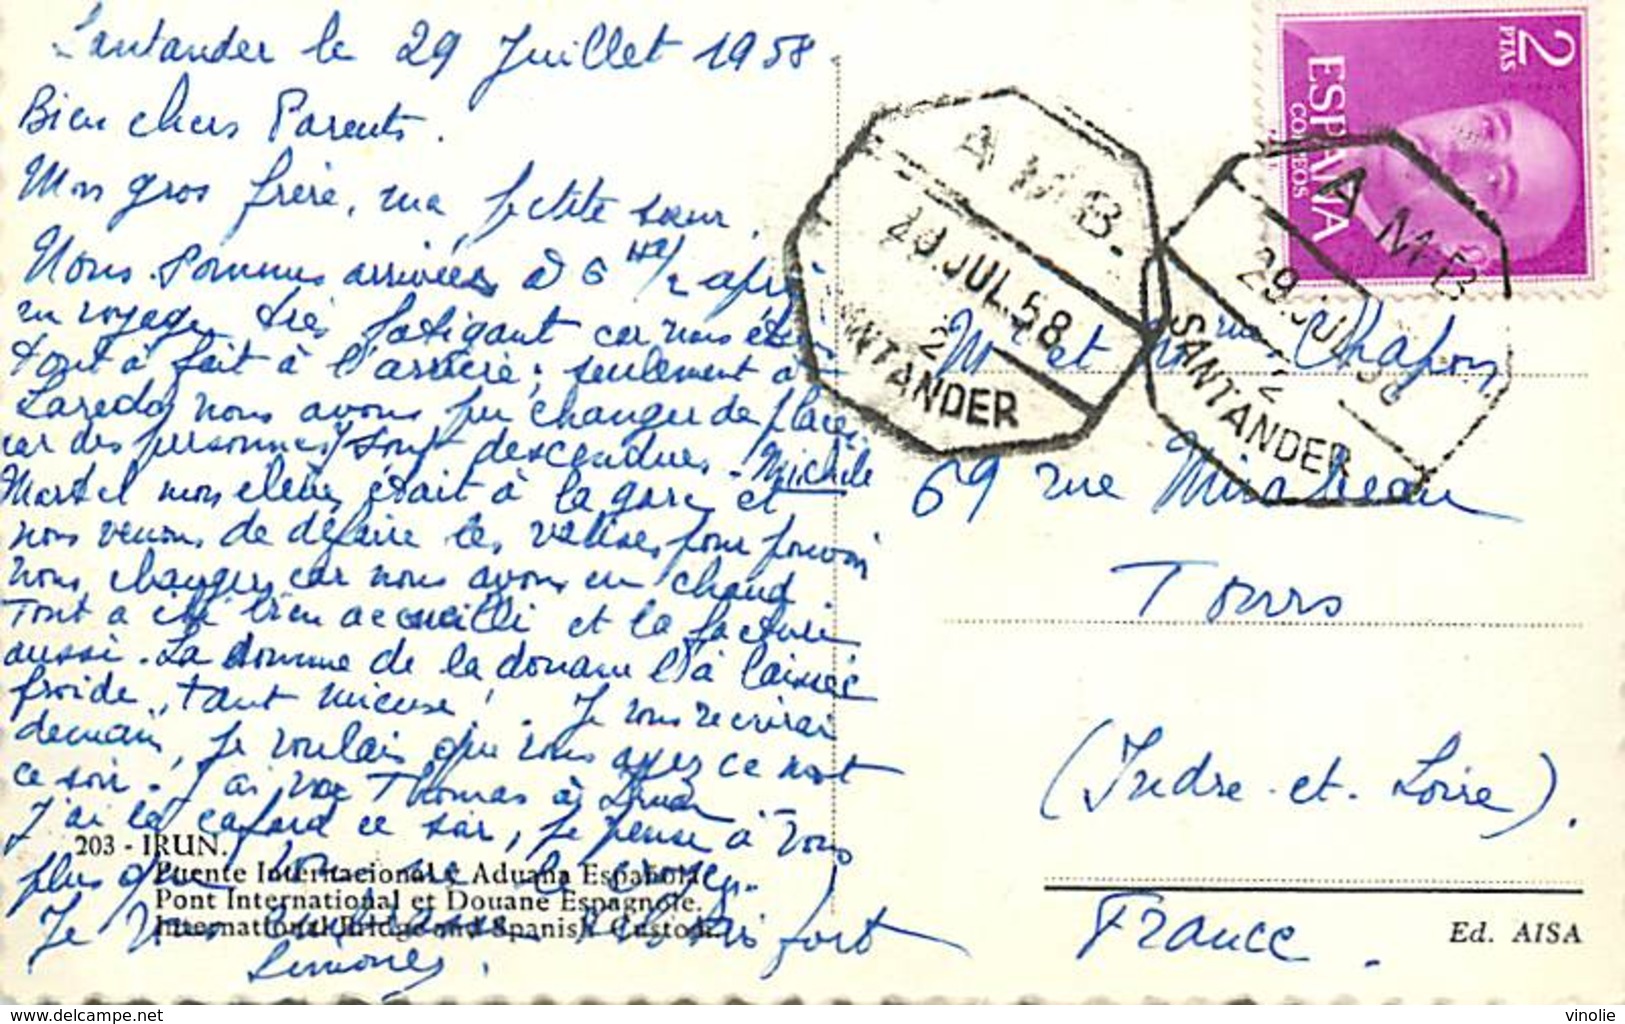 Santander le 29 Juillet 1958.
Bien chers Parents.
Mon gros frère, ma petite sœur.
Nous sommes arrivées à 6 h 1/2 après
un voyage très fatigant car nous étions
tout à fait à l'arrière; seulement à
Laredo, nous avons pu changer de places
car des personnes sont descendues. Michèle
Martel mon élève était à la gare et
nous venons de défaire les valises pour pouvoir
nous changer car nous avons eu chaud.
Tout a été bien accueilli et la facture
aussi. La somme de la douane l'a laissée
froide, tant mieux! Je vous récrirai
demain, je voulais que vous ayez ce mot
ce soir. J'ai vu Thomas à
J'ai le cafard ce soir, je pense à vous
plus que vous ne le croyez.
Je vous embrasse très fort
Simone.
203 - IRUN.
Puente Internacional y Aduana Española.
Pont International et Douane Espagnole.
International Bridge and Spanish Custom.
2
PTAS
ESPAÑA
CORREOS
AMB.
29.JUL.58
2
SANTANDER
AMB.
29.JUL.58
2
SANTANDER
Mr et Mme Chapon
69 rue Mirabeau
Tours
(Indre-et-Loire).
France.
Ed. AISA
www.delcampe.net
vinolie